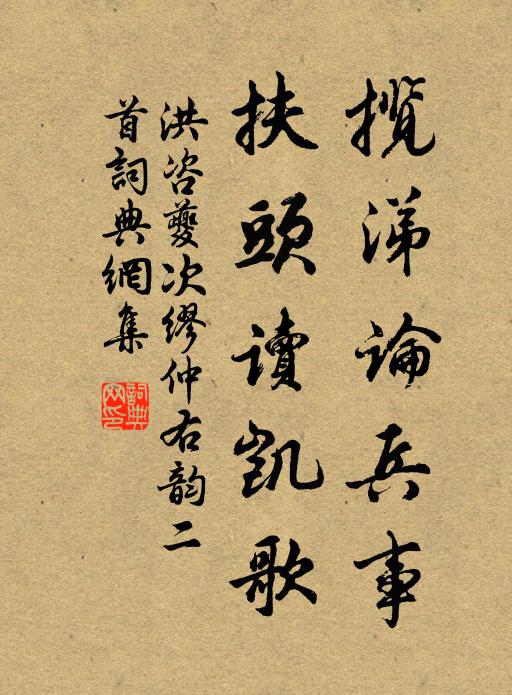 攬涕論兵事
扶頭讀凱歌
洪咨夔次繆仲右韵二
首詞典網集
詞典網印